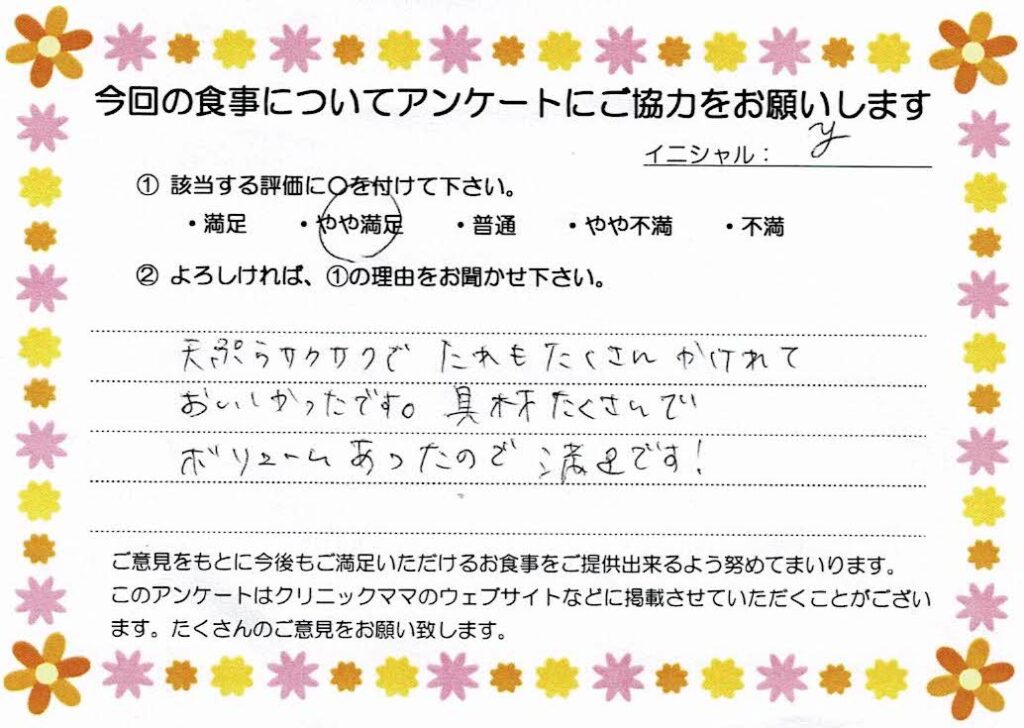 今回の食事についてアンケートにご協力をお願いします
イニシャル： y
① 該当する評価に○を付けて下さい。
・満足 ・やや満足 ・普通 ・やや不満 ・不満
② よろしければ、①の理由をお聞かせ下さい。
天ぷらサクサクで たれもたくさん かけれて
おいしかったです。具材たくさんで
ボリュームあったので 満足です！
ご意見をもとに今後もご満足いただけるお食事をご提供出来るよう努めてまいります。
このアンケートはクリニックママのウェブサイトなどに掲載させていただくことがござい
ます。たくさんのご意見をお願い致します。